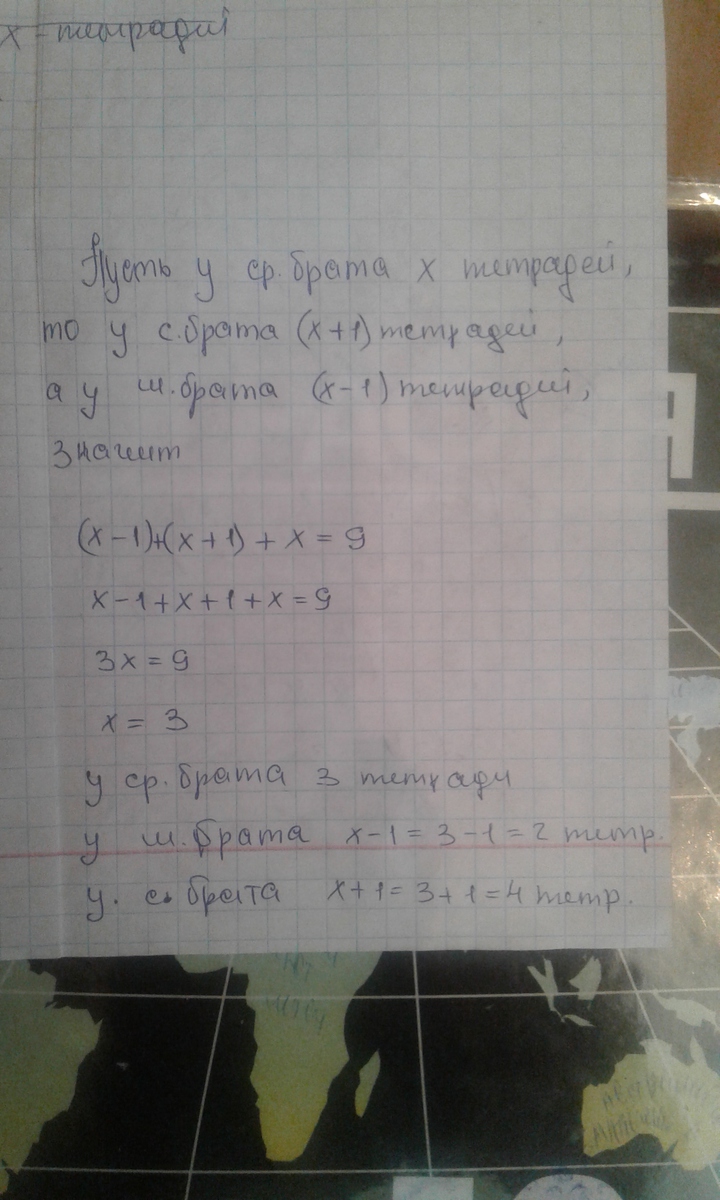 x - тетрадей
Пусть у ср. брата x тетрадей,
то у с. брата (x+1) тетрадей,
а у м. брата (x-1) тетрадей,
значит
(x-1)+(x+1)+x=9
x-1+x+1+x=9
3x=9
x=3
у ср. брата 3 тетради
у м. брата x-1=3-1=2 тетр.
у. с. брата x+1=3+1=4 тетр.
Я